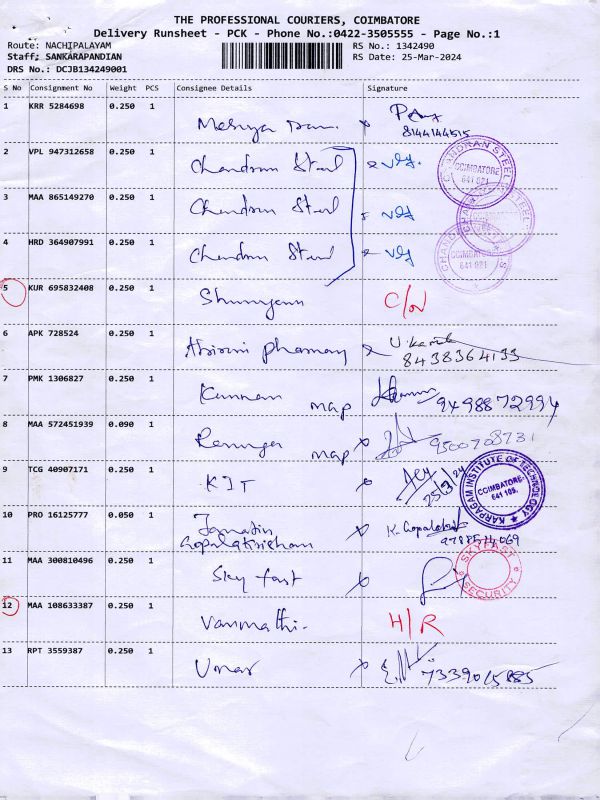 THE PROFESSIONAL COURIERS, COIMBATORE
Delivery Runsheet - PCK - Phone No.:0422-3505555 - Page No.:1
Route: NACHIPALAYAM RS No.: 1342490
Staff: SANKARAPANDIAN RS Date: 25-Mar-2024
DRS No.: DCJB134249001
S No Consignment No Weight PCS Consignee Details Signature
1 KRR 5284698 0.250 1
8144144515
2 VPL 947312658 0.250 1 Chandran Steel
CHANDRAN STEEL COIMBATORE 641 021
3 MAA 865149270 0.250 1 Chandran Steel
4 HRD 364907991 0.250 1 Chandran Steel
COIMBATORE 641 021
5 KUR 695832408 0.250 1 C/N
6 APK 728524 0.250 1 Abirami pharmacy
8438364133
7 PMK 1306827 0.250 1 Kannan map 9498872994
8 MAA 572451939 0.090 1 Renuga map 9500708731
9 TCG 40907171 0.250 1 KIT 25/3/24
KARPAGAM INSTITUTE OF TECHNOLOGY COIMBATORE- 641 105.
10 PRO 16125777 0.050 1 K. Gopalakrish
Gopalakrishnan
11 MAA 300810496 0.250 1 Sky fast
SKYFAST SECURITY
12 MAA 108633387 0.250 1 Vanmathi. H/R
13 RPT 3559387 0.250 1 Umar 7339015885